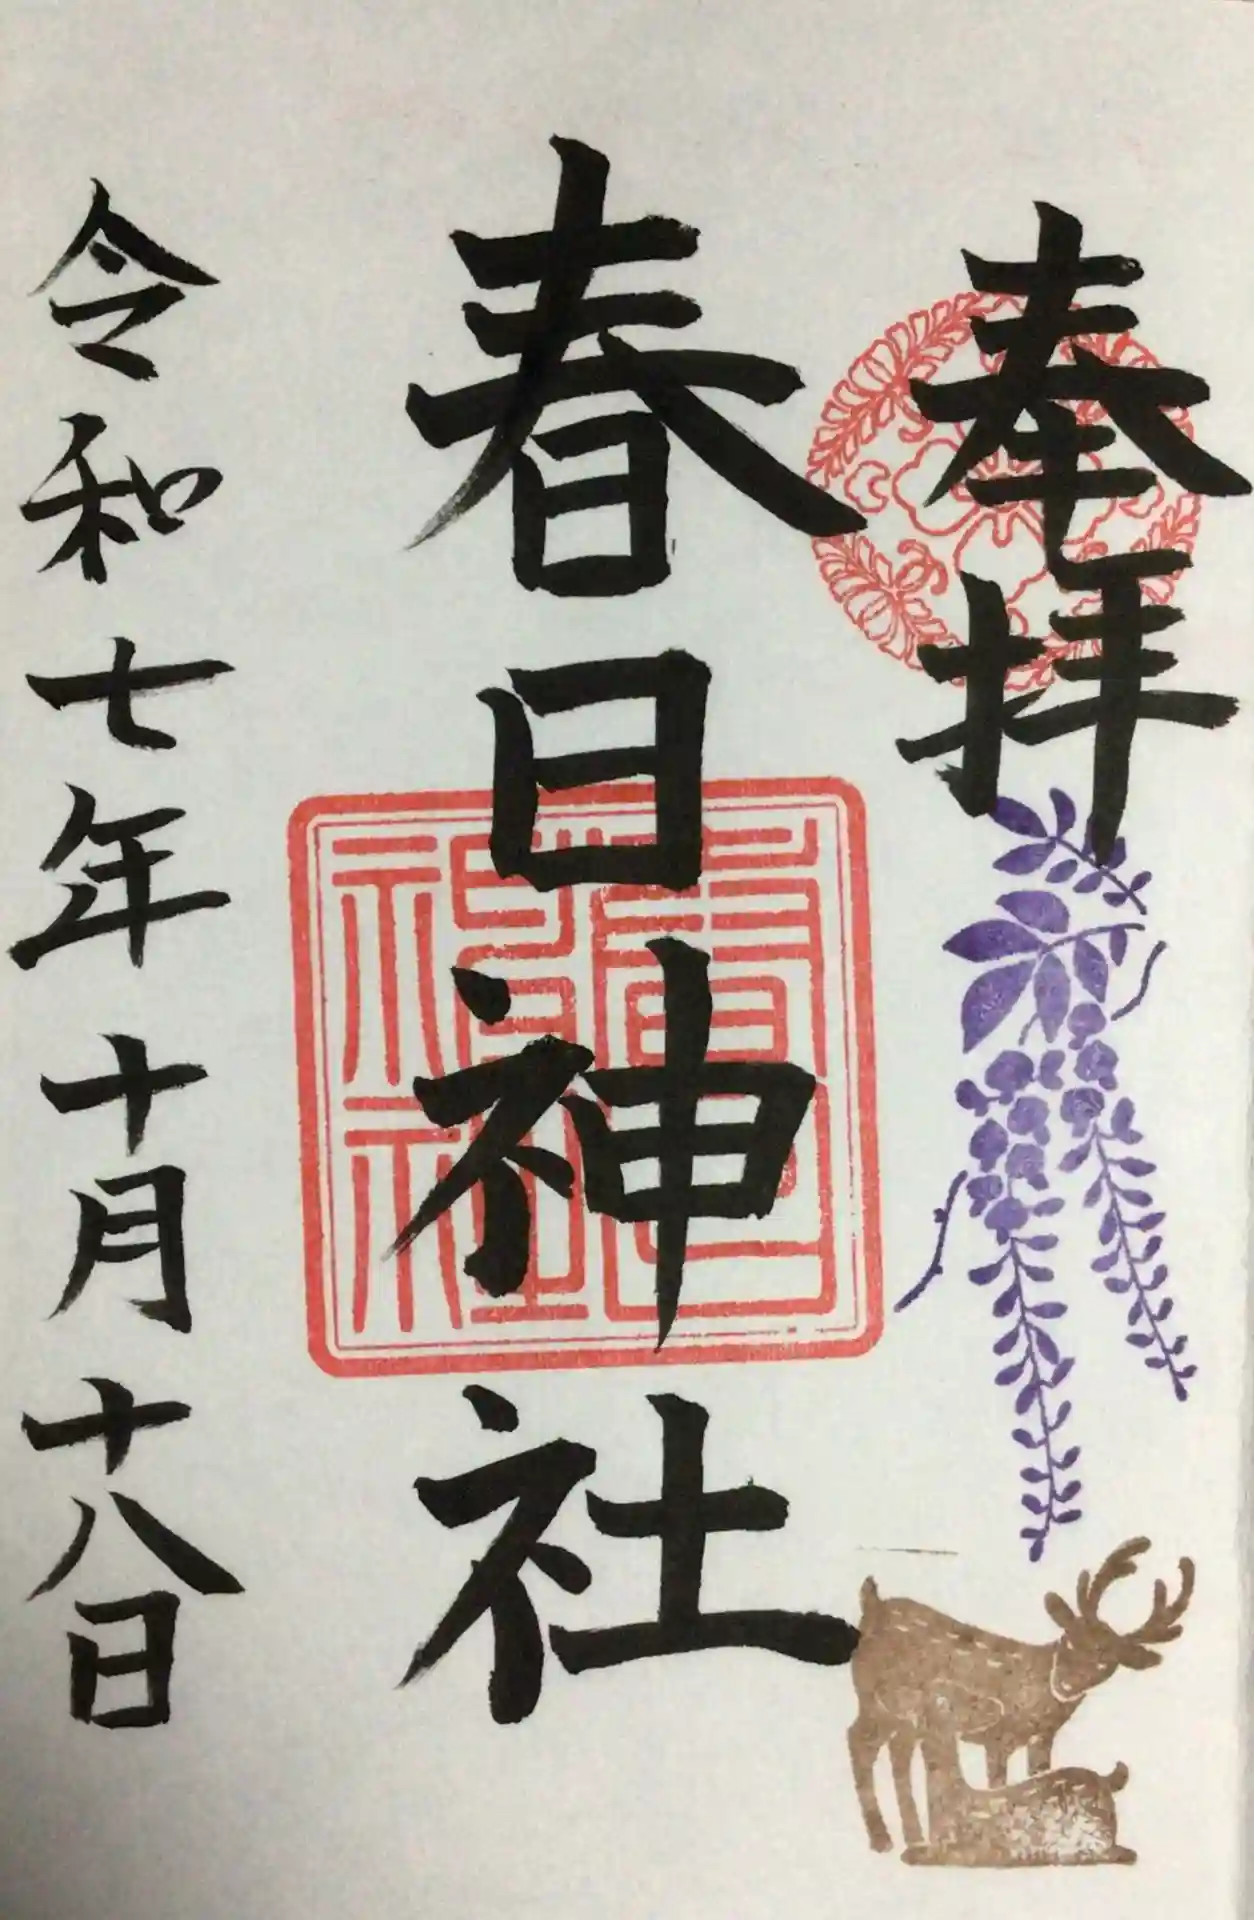 奉拝
春日神社
春日神社
令和七年十月十八日